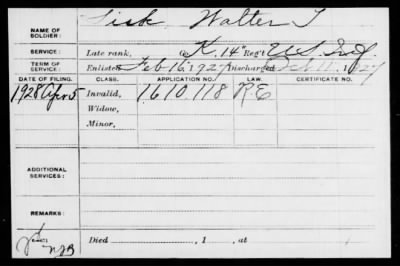 NAME OF SOLDIER: Sisk Walter T
SERVICE: Late rank, Co K. 14" Reg't U.S. Inf.
TERM OF SERVICE: Enlisted Feb 16, 1927 Discharged Oct 11, 1927
DATE OF FILING. CLASS. APPLICATION NO. LAW. CERTIFICATE NO.
1928 Apr 5 Invalid, 1610.118 R.E
Widow,
Minor,
ADDITIONAL SERVICES:
REMARKS:
Died , 1 , at